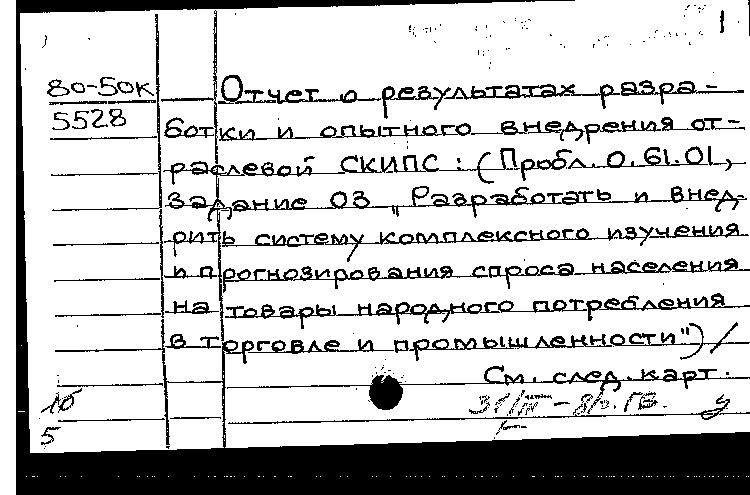 1
80-50к
5528
Отчет о результатах разра-
ботки и опытного внедрения от-
раслевой СКИПС: (Пробл. 0.61.01,
задание 03 „Разработать и внед-
рить систему комплексного изучения
и прогнозирования спроса населения
на товары народного потребления
в торговле и промышленности") /
См. след. карт.
10
5